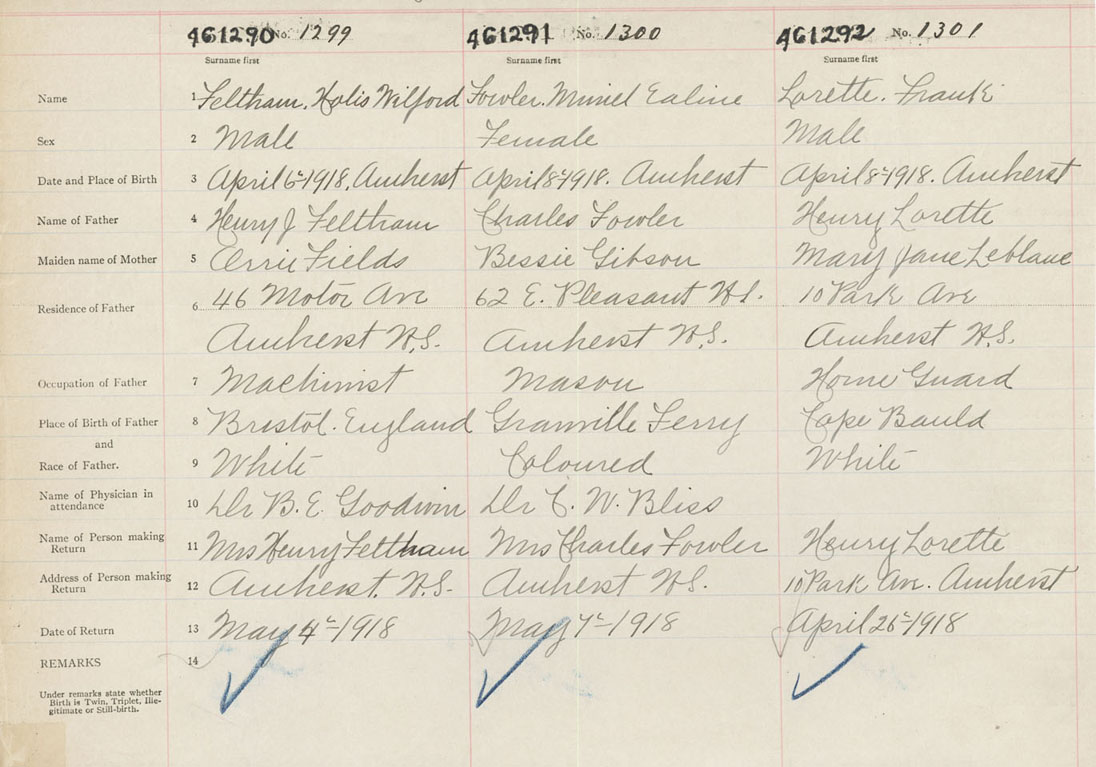 461290 No. 1299 461291 No. 1300 461292 No. 1301
Surname first Surname first Surname first
Name 1 Feltham, Holis Wilford Fowler. Muriel Ealine Lorette. Frank
Sex 2 Male Female Male
Date and Place of Birth 3 April 6th 1918, Amherst April 8th 1918. Amherst April 8th 1918. Amherst
Name of Father 4 Henry J Feltham Charles Fowler Henry Lorette
Maiden name of Mother 5 Fields Bessie Gibson Mary Jane Leblanc
Residence of Father 6 46 Motor Ave 62 E. Pleasant 10 Park Ave
Amherst N.S. Amherst N.S. Amherst N.S.
Occupation of Father 7 Machinist Mason Home Guard
Place of Birth of Father 8 Bristol. England Granville Ferry Cape Bauld
and
Race of Father. 9 White Coloured White
Name of Physician in attendance 10 Dr B. E. Goodwin Dr C. W. Bliss
Name of Person making Return 11 Mrs Henry Feltham Mrs Charles Fowler Henry Lorette
Address of Person making Return 12 Amherst. N.S. Amherst N.S. 10 Park Ave. Amherst
Date of Return 13 May 4th 1918 May 7th 1918 April 26th 1918
REMARKS 14
Under remarks state whether
Birth is Twin, Triplet, Ille-
gitimate or Still-birth.